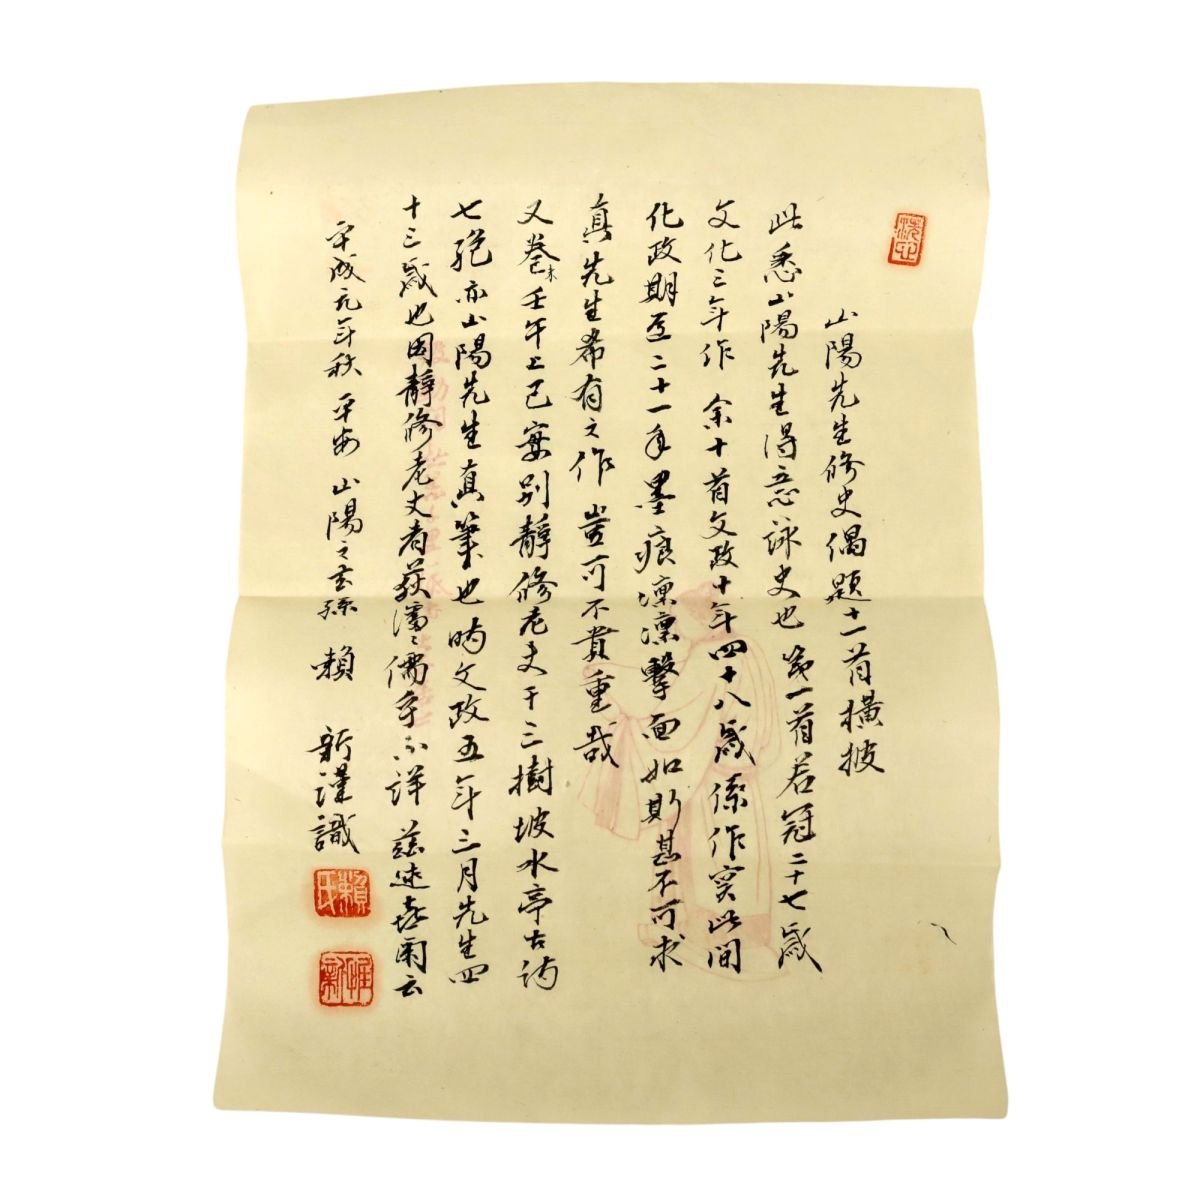 山陽先生修史偶題十一首横披
此悉山陽先生得意詠史也 第一首若冠二十七歳
文化三年作 余十首文政十年四十八歳係作実此間
化政期亘二十一年墨痕凛凛撃面如斯甚不可求
真先生希有之作 豈可不貴重哉
又巻末壬午上巳宴別静修老丈于三樹坡水亭古詩
七絶亦山陽先生真筆也 時文政五年三月先生四
十三歳也因静修老丈者荻藩之儒乎不詳 茲述喜爾云
平成元年秋 平安 山陽之玄孫 頼 新謹識
頼氏
惟新